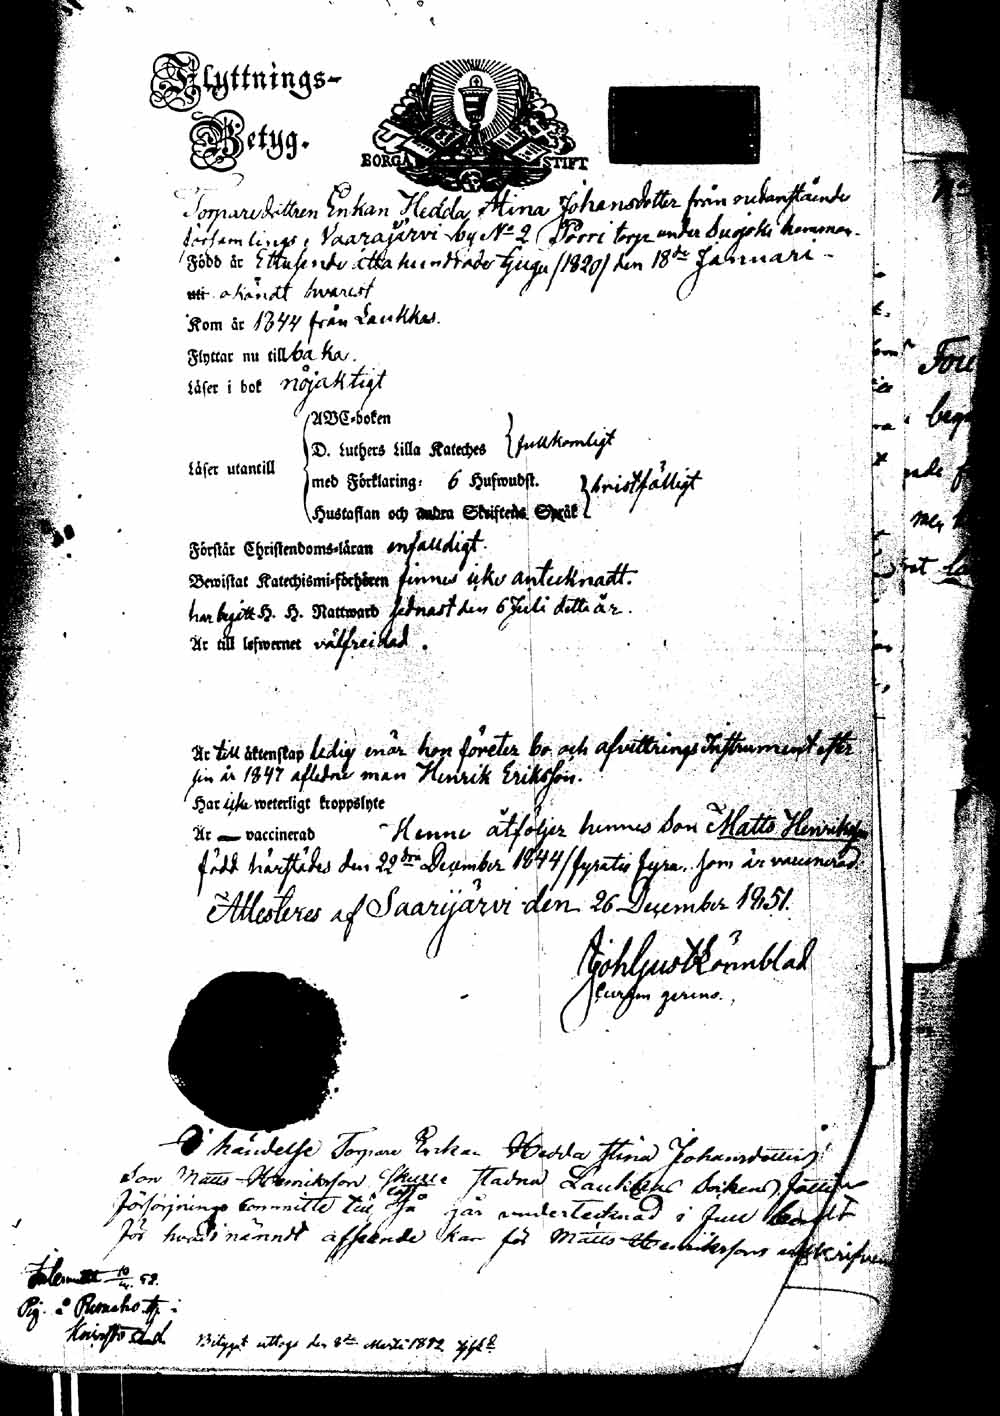 Flyttnings-
Betyg.
BORGÅ STIFT
Enkan Hedda Stina Johansdotter från nedanstående
församlings Vaarajärvi by No 2 Porri torp under hemman.
Född år Ettusende åttahundrade tjugu /1820/ den 18de Januari
uti okändt hwarest
Kom år 1844 från Laukkas.
Flyttar nu tillbaka.
Läser i bok nöjaktigt
Läser utantill
ABC-boken
D. Luthers Lilla Kateches
fullkomligt
med Förklaring: 6 Hufwudst.
Hustaflan och andra Skriftens Språk
bristfälligt
Förstår Christendoms-läran enfaldigt.
Bewistat Katechismi-förhören finnes icke antecknadt.
har begått H. H. Nattward sednast den 6 Juli detta år.
Är till lefwernet välfrejdad.
Är till äktenskap ledig enär hon företer bo och afvittrings Instrument efter
sin år 1847 afledne man Henrik Eriksson.
Har icke weterligt kroppslyte
Är — vaccinerad Henne åtföljer hennes Son Matts Henriksson
född härstädes den 22dra December 1844 /fyratio fyra. som är vaccinerad.
Attesteres af Saarijärvi den 26 December 1851.
Joh Gust Lönnblad
I händelse Torpare Enkan Hedda Stina Johansdotters
Son Matts Henriksson Laukkas Socken,
försörjnings committe till får undertecknad i
för hvad nämndt afseende kan för Matts Henrikssons
Betyget uttogs den 8de Martii